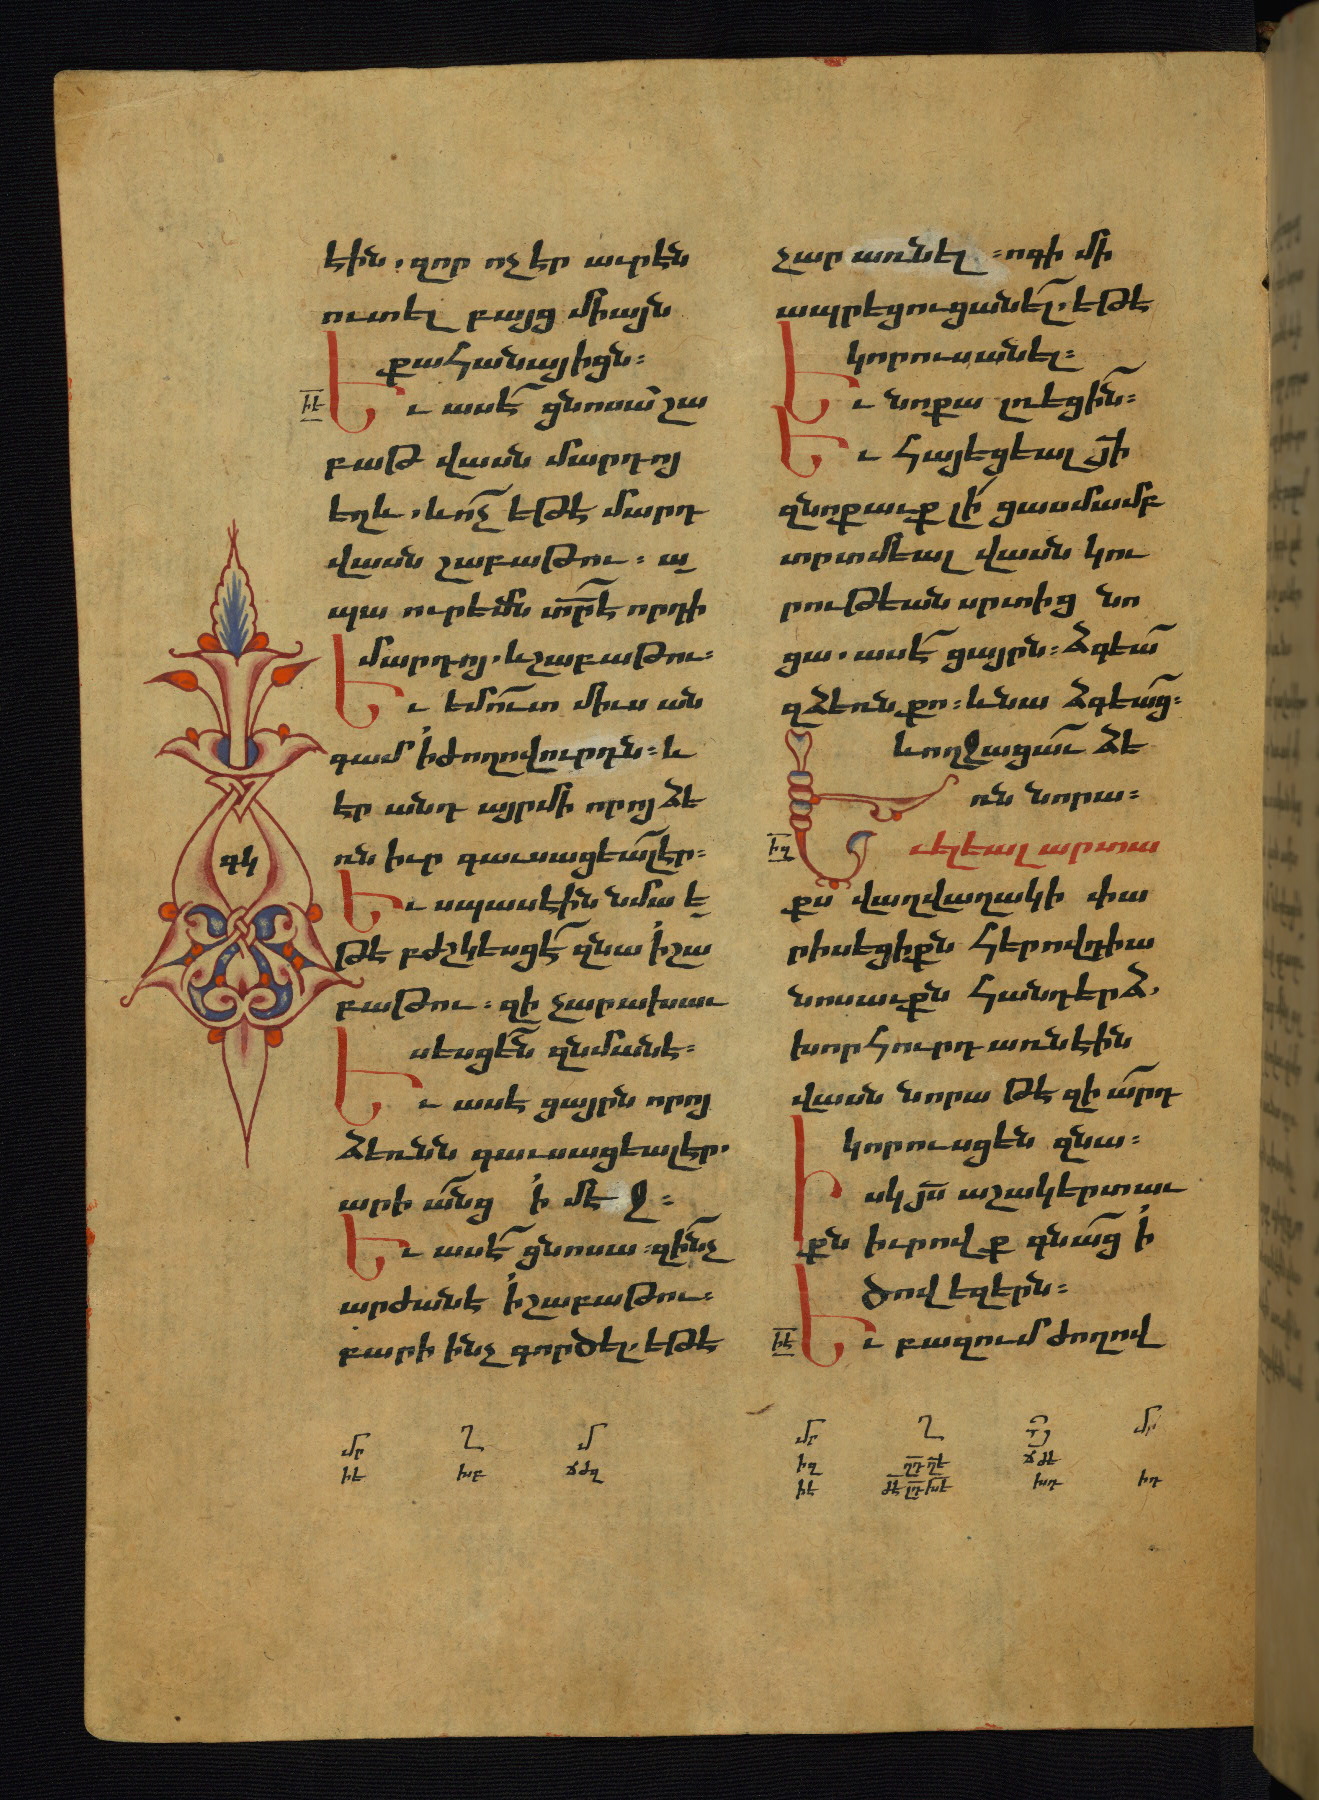 էին. զոր ոչ էր աւրէն
ուտել բայց միայն
քահանայիցն։
իէ Եւ ասէ՜ ցնոսա՝ շա
բաթ վասն մարդոյ
եղև. և ոչ՜ եթէ մարդ
վասն շաբաթու։ ա
պա ուրեմն տր՜է որդի
մարդոյ. և շաբաթու։
Եւ եմուտ միւս ան
գամ ՛ի ժողովուրդն։ և
էր անդ այր մի որոյ ձե
ռն իւր գաւսացեալ էր։
Եւ սպասէին նմա ե
թէ բժշկեսցէ՜ զնա ՛ի շա
բաթու։ զի չարախաւ
սեսցեն զնմանէ։
Եւ ասէ ցայրն որոյ
ձեռնն գաւսացեալ էր.
արի ա՜նց ՛ի մէջ։
Եւ ասէ՜ ցնոսա։ զի՜նչ
արժանէ ՛ի շաբաթու։
բարի ինչ գործել. եթէ
գկ
չար առնել։ ոգի մի
ապրեցուցանել՜. եթէ
կորուսանել։
Եւ նոքա լռեցի՜ն։
Եւ հայեցեալ յ՜ի
զնոքաւք լի՛ ցասմամբ
տրտմեալ վասն կու
րութեան սրտից նո
ցա. ասէ՜ ցայրն։ ձգեա՜
զձեռն քո։ և նա ձգեա՜ց։
և ողջացաւ ձե
ռն նորա։
իզ Եւ ելեալ արտա
քս վաղվաղակի փա
րիսեցիքն հերովդիա
նոսաւքն հանդերձ.
խորհուրդ առնէին
վասն նորա թէ զի ա՜րդ
կորուսցեն զնա։
Իսկ յ՜ս աշակերտաւ
քն իւրովք գնա՜ց ՛ի
ծովեզերն։
իէ Եւ բազում ժողով
մր Ղ մ
իէ խբ ճժզ
մր Ղ մ
իզ ղդ ղե ճժե
իէ ժէ լդ խէ խդ իդ